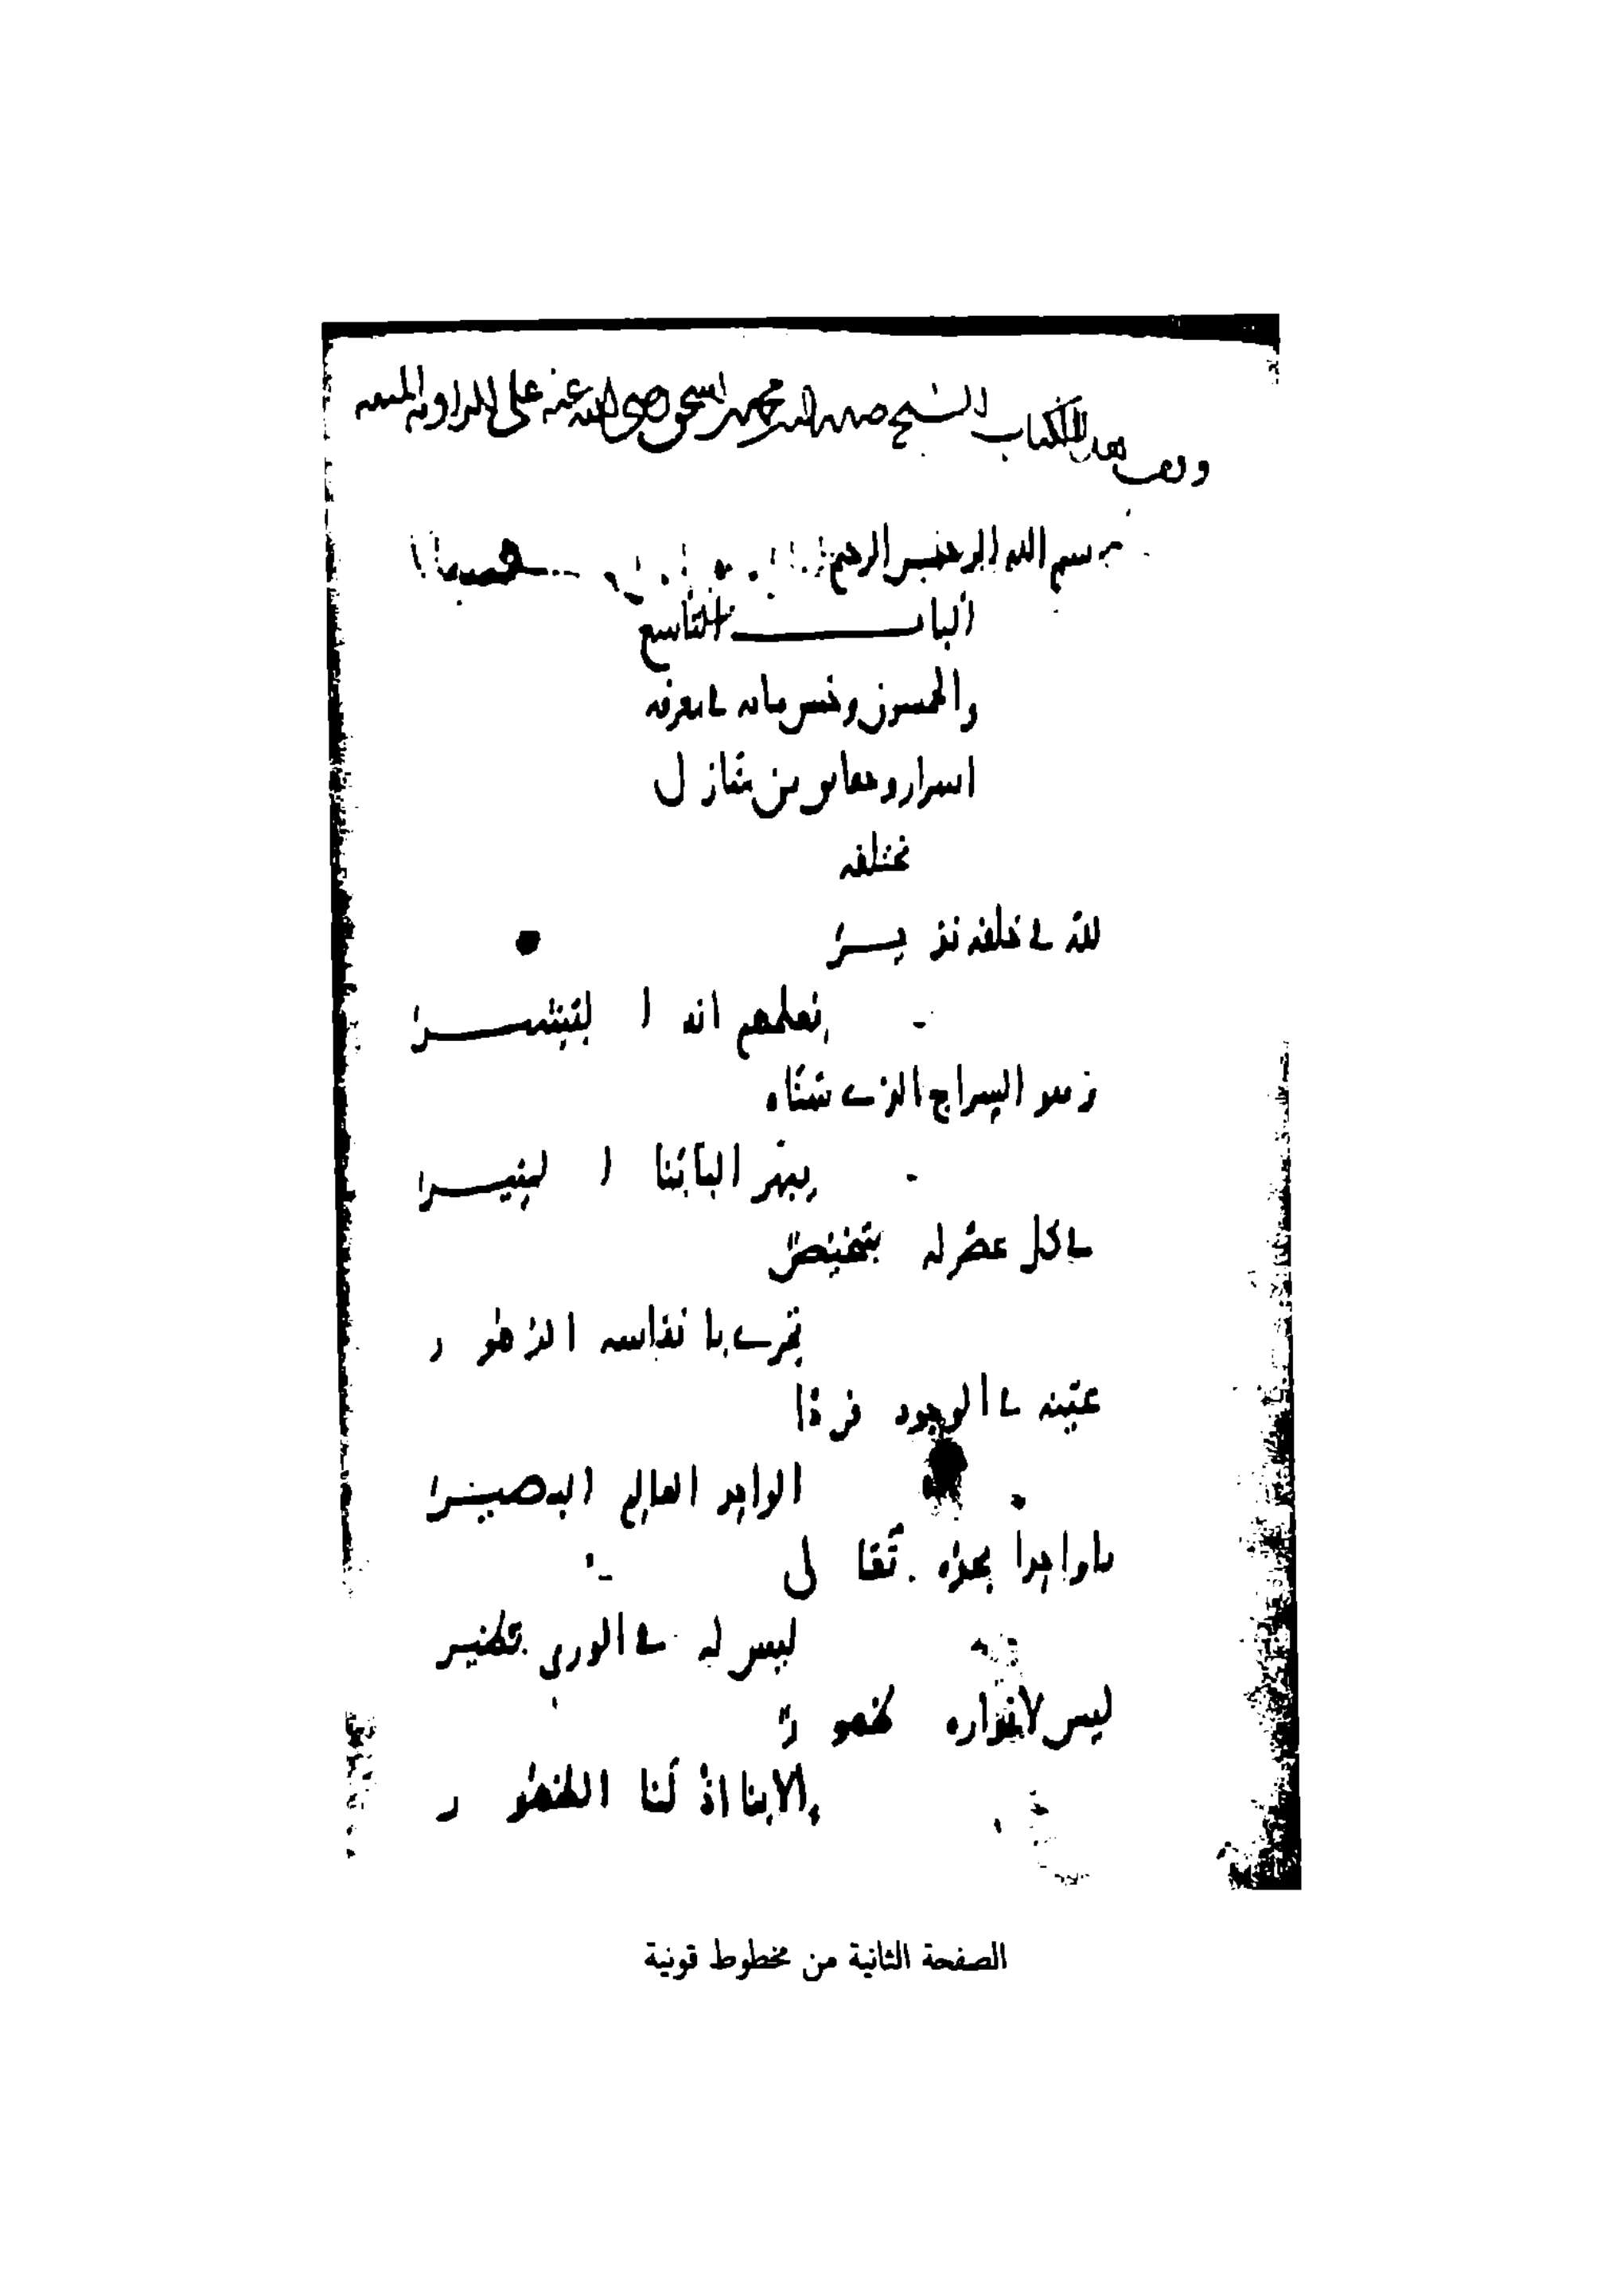 وقف هذا الكتاب الشيخ صدر الدين محمد بن اسحق رضي الله عنه على الزاوية
بسم الله الرحمن الرحيم
الباب التاسع
والخمسون وخمس مائه في معرفه
اسرار وحقايق من منازل
مختلفه
لله في خلقه نذير
يعلمهم انه البشير
وهو السراج الذي سناه
يبهر البابنا المنير
في كل عصر له شخيص
تجري بانفاسه الدهور
عينه في الوجود فردا
الواحد العالم البصير
يا واحدا مجده تعالى
ليس له في الورى نظير
ليس لانواره ظهور
الا بنا اذ لنا الظهور
الصفحة الثانية من مخطوط قونية